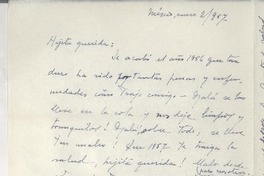 México, enero 2/957
Hijita querida:
Se acabó el año 1956 que tan
duro ha sido por tantas penas y enfer-
medades como trajo consigo - Ojalá se las
lleve en la cola y nos deje limpios y
tranquilos! Ojalá, sobre todo, se lleve
tus males! Que 1957 te traiga la
salud, hijita querida!